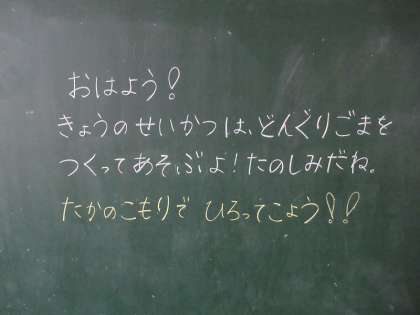 おはよう!
きょうのせいかつは、どんぐりごまを
つくってあそぶよ!たのしみだね。
たかのこもりで ひろってこよう!!